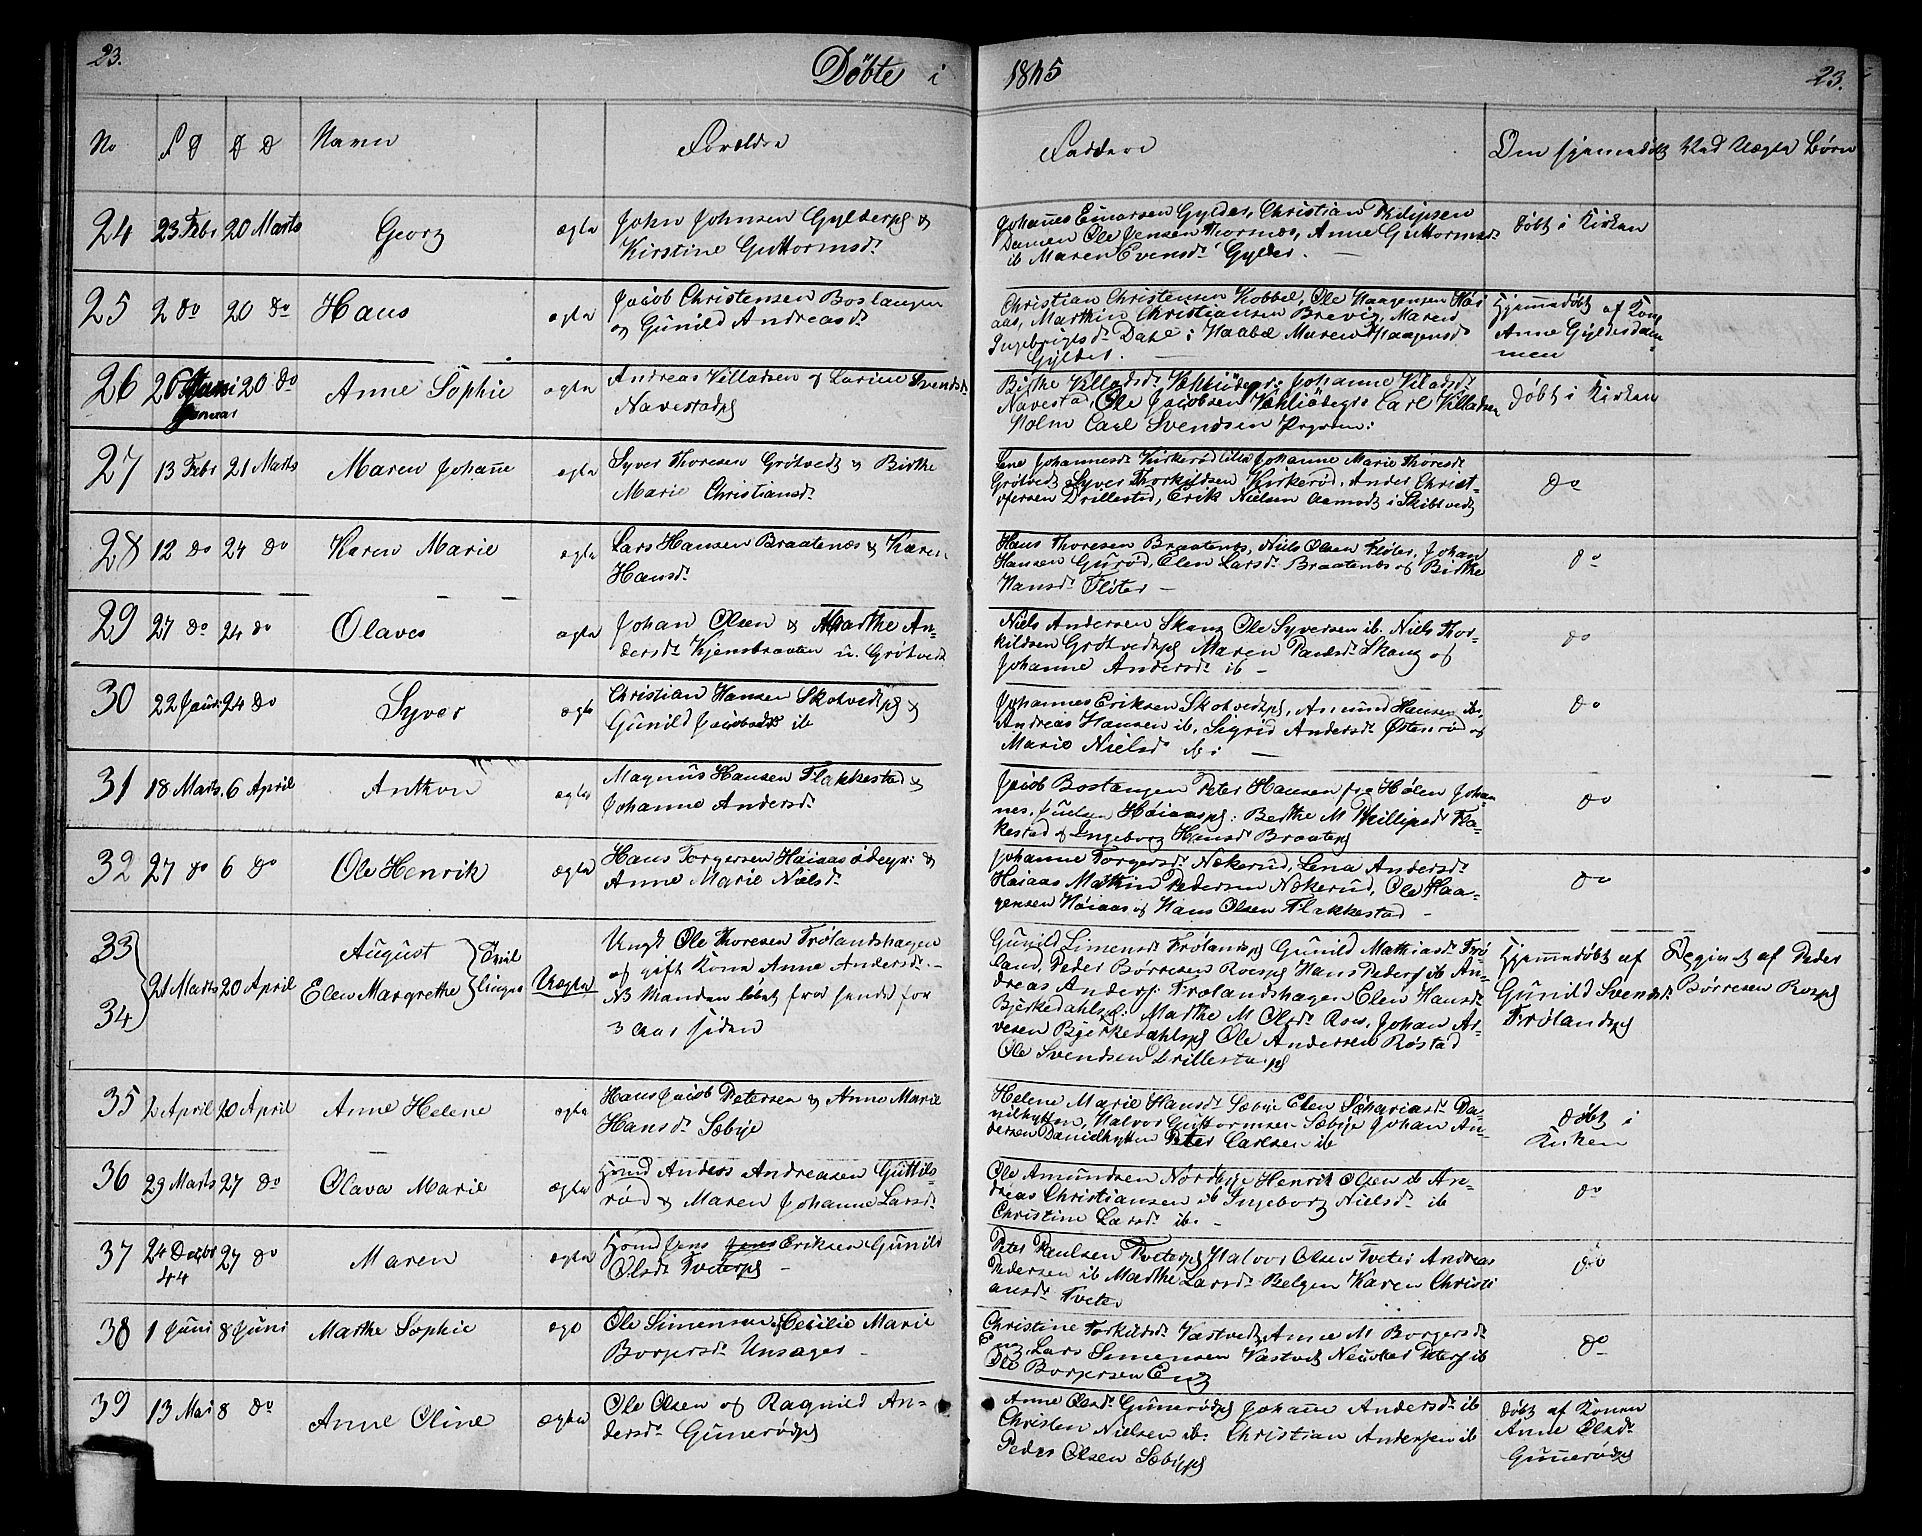 23. Døbte i 1845 23.
No F D D D Navn Forældre Faddere Om hjemmedøbt Ved Uægte Børn
24 23 Febr 20 Marts Georg ægte John Johnsen Gylderpl &
Kirstine Guttormsdr.
Johañes Einarsen Gylder, Christian Philipsen
Damen Ole Jensen Thornæs, Anne Guttormsdr
ib Maren Evensdr Gylder. —
døbt i Kirken
25 2 do 20 do Hans ægte Jacob Christensen Bostangen
og Gunild Andreasdr.
Christian Christensen Kobbel, Ole Haagensen Høi
aas, Marthin Christiansen Brevig, Maren
Ingebrigtsdr Dale i Haabøl Maren Haagensdr
Gylder. —
Hjemmedøbt af Kone
Anne Gylderdam-
men
26 26 Januar 20 do Anne Sophie ægte Andreas Villadsen og Larine Svendsdr
Navestadpl
Birthe Villadsdr Johanne Viladsdr
Navestad, Ole Jacobsen Carl Villadsen
Holm Carl Svendsen
døbt i Kirken
27 13 Febr 21 Marts Maren Johañe ægte Syver Thoresen Grötvedt & Birthe
Marie Christiansdr.
Lene Johannesdr Kirkerød lille Johanne Marie Thoresdr
Grötvedt Syver Thorkildsen Kirkerød, Ander Christ-
ofersen Drillestad, Erik Nielsen Aamodt i Skibtvedt
do
28 12 do 24 do Karen Marie ægte Lars Hansen Braatenes & Karen
Hansdr.
Hans Thoresen Braatenes, Niels Olsen Fløter, Johan
Hansen Gurød, Elen Larsdr Braatenes og Birthe
Hansdr Fløter —
do
29 27 do 24 do Olaves ægte Johan Olsen & Marthe An-
dersdr Kjensbraaten u. Grötvedt
Niels Andersen Skaug Ole Syversen ib. Niels Thor-
kildsen Grötvedtpl Maren Paulsdr Skaug og
Johanne Andersdr ib —
do
30 22 Janu 24 do Syver ægte Christian Hansen Skotvedtpl &
Gunild Jacobsdr ib
Johannes Eriksen Skotvedtpl, Amund Hansen ib,
Andreas Hansen ib, Sigrid Andersdr Østenrød og
Marie Nielsdr ib: —
do
31 18 Marts 6 April Anthon ægte Magnus Hansen Flakkestad &
Johanne Andersdr
Jacob Bostangen Peter Hansen fra Hølen Johan
nes Juelsen Høiaaspl. Berthe M Phillipsdr Fla-
kestad og Ingeborg Hansdr Braatepl
do
32 27 do 6 do Ole Henrik ægte Hans Torgersen Høiaas ødegr: &
Anne Marie Nielsdr
Johanne Torgersdr. Nækerud, Lena Andersdr
Høiaas Mathin Pedersen Nækerud, Ole Haa-
gensen Høiaas og Hans Olsen Flakkestad —
do
33
34 21 Marts 20 April August
Elen Margrethe Tvil
linger Uægte Ungk Ole Thoresen Frølandshagen
og gift Kone Anne Andersdr. —
NB Manden løbet fra hende for
3 aar siden
Gunild Simensdr Frølandpl Gunild Mathiasdr Frø
land, Peder Børresen Roespl Hans Peders ib An-
dreas Anders: Frølandshagen Elen Hansdr
Bjerkedahlspl: Marthe M Olsdr Roes, Johan Ar-
vesen Bjerkedahlspl Ole Andersen Røstad
Ole Svendsen Drillestadpl
Hjemmedøbt af
Gunild Svendsdr
Frølandspl
Begivet af Peder
Børresen Roespl
35 2 April 20 April Anne Helene ægte Hans Jacob Petersen & Anne Marie
Hansdr Sæbye
Helene Marie Hansdr Sæbye Elen Sachariasdr Da-
nilhytten, Halvor Guttormsen Sæbye Johan An-
dersen Danielhytten Peter Carlsen ib
døbt i
Kirken
36 29 Marts 27 do Olava Marie ægte Hmd Anders Andreasen Guttils
rød & Maren Johanne Larsdr.
Ole Amundsen Nordbye Henrik Olsen ib An-
dreas Christiansen ib Ingeborg Nielsdr ib
Christine Larsdr ib. —
do
37 24 Decbr
44 27 do Maren ægte Hmd Jens Jens Eriksen Gunild
Olsdr Tveterpl —
Peter Paulsen Tveterpl Halvor Olsen Tveter Andreas
Pedersen ib Marthe Larsdr Belgen Karen Christi
ansdr Tveter
do
38 1 Juni 8 Juni Marthe Sophie ægt Ole Simensen og Cecilie Marie
Borgersdr Unsager —
Christine Torkildsdr Vastvedt, Anne M Borgersdr
Eng, Lars Simensen Vastvedt ib
Ole Borgersen Eng
do
39 13 Mai 8 do Anne Oline ægte Ole Olsen og Ragnild An-
dersdr Gunerødpl
Anne Olsdr Gunnerødpl Johañe Andersdr ib
Christen Nielsen ib. Christian Andersen ib
Peder Olsen Sæbypl
døbt af Konen
Anne Olsdr
Guñerødpl